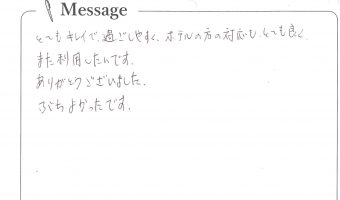 Message
とてもキレイで、過ごしやすく、ホテルの方の対応も、とても良く、
また利用したいです。
ありがとうございました。
ぶちよかったです。